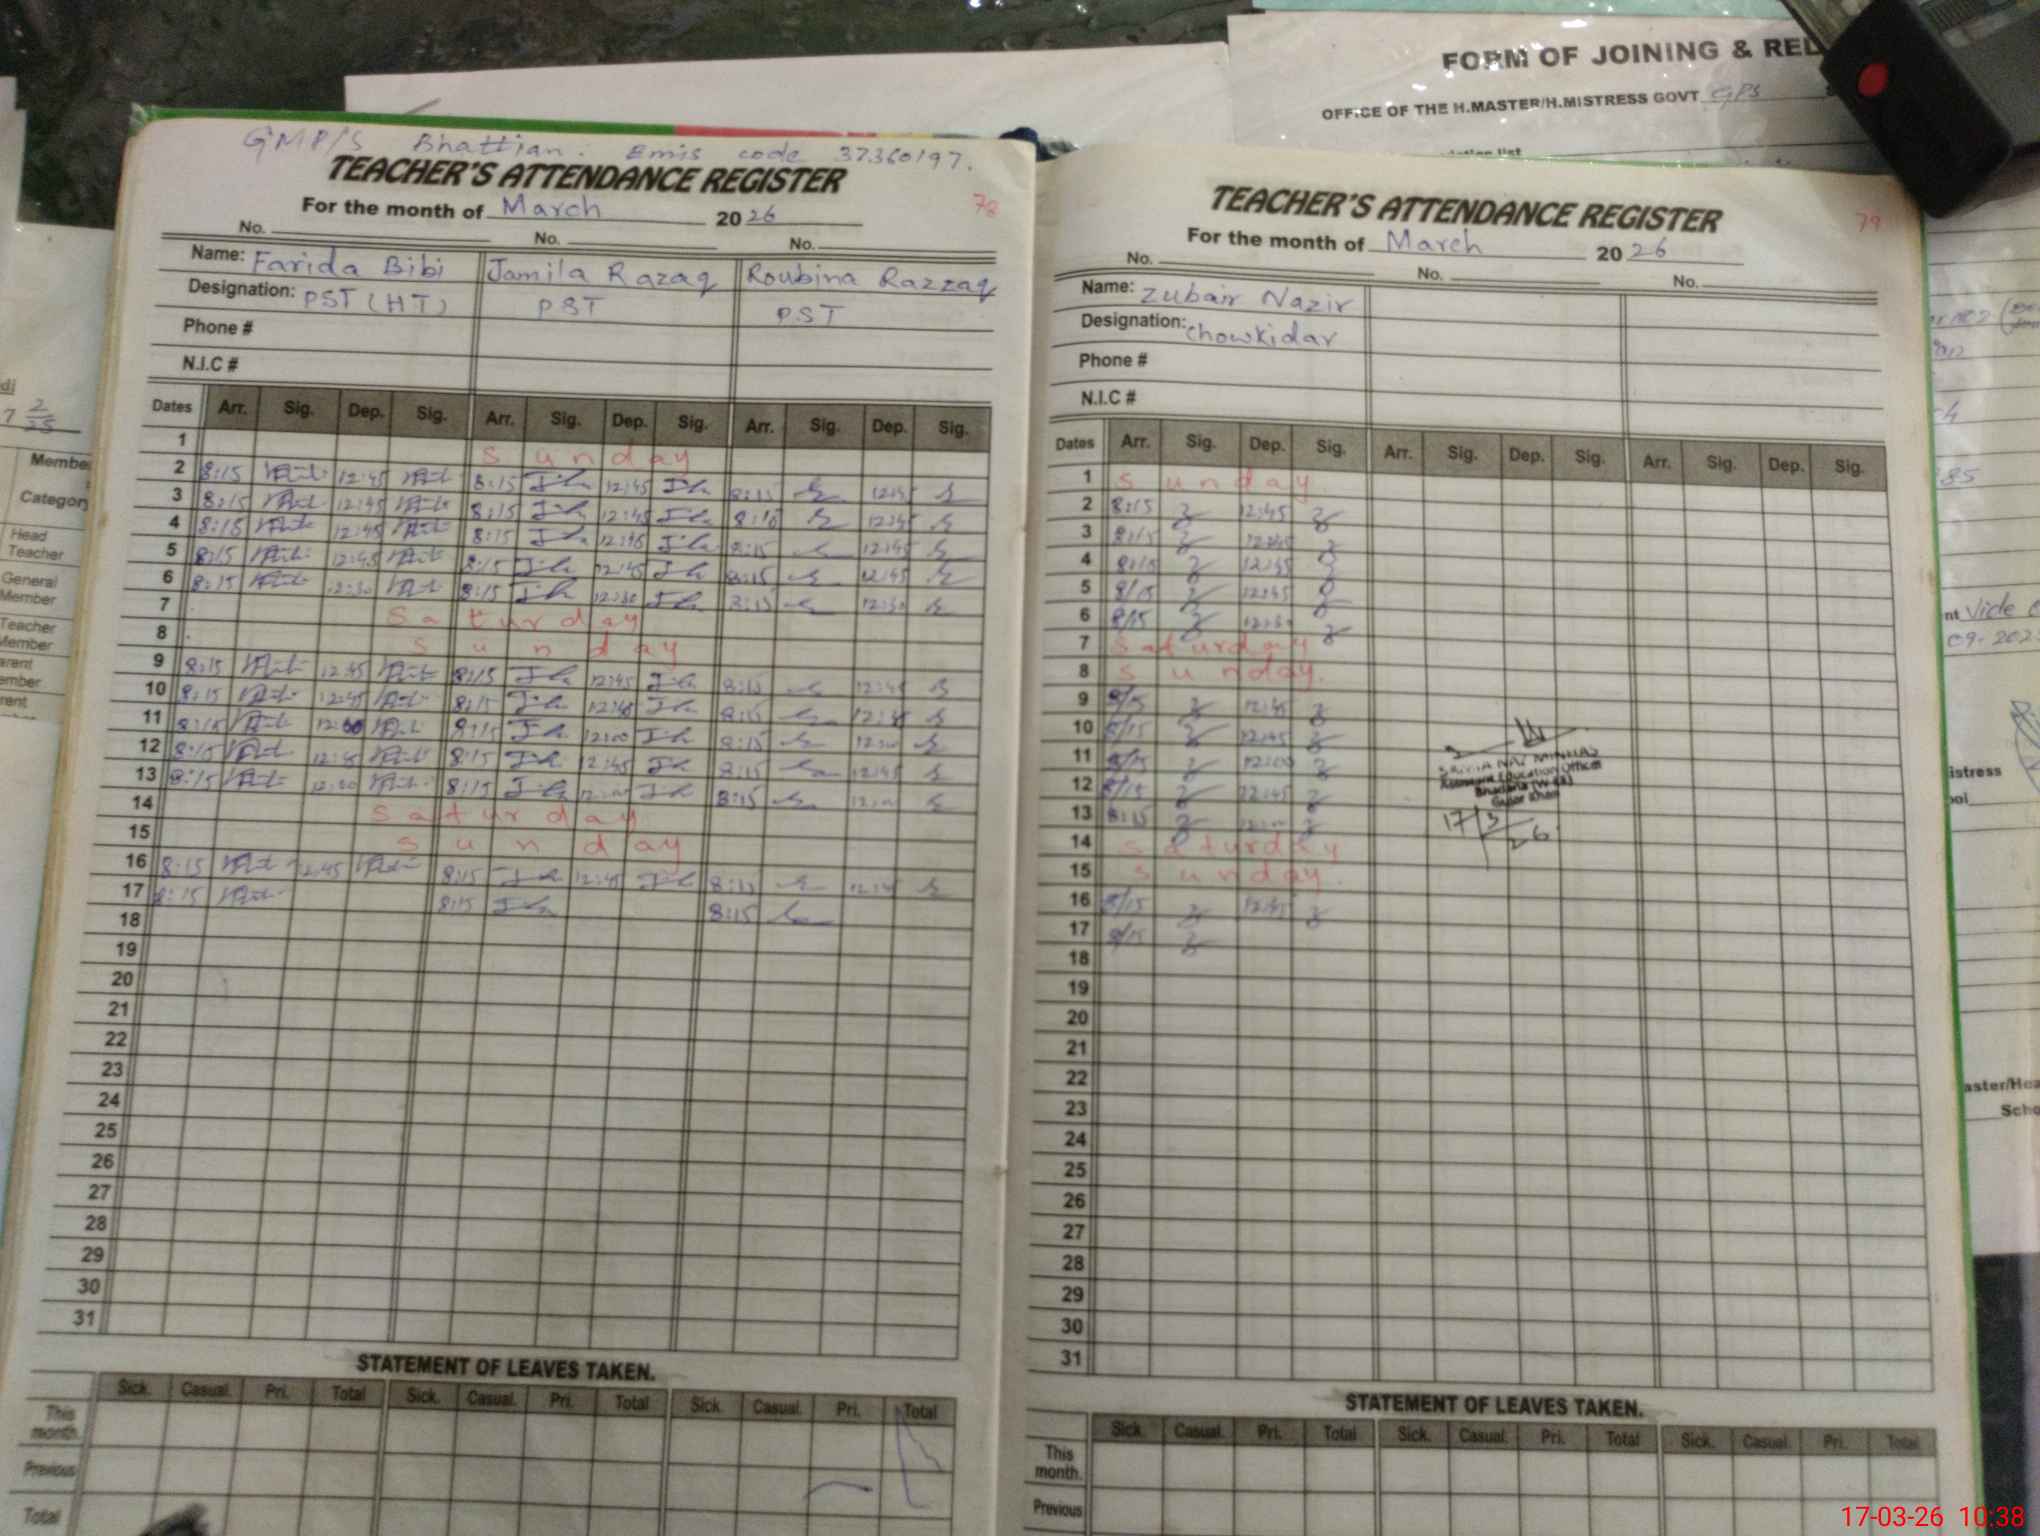 FORM OF JOINING & REL
OFFICE OF THE H.MASTER/H.MISTRESS GOVT GPS
GMP/S Bhattian. Emis code 37360197.
TEACHER'S ATTENDANCE REGISTER
78
For the month of March 2026
No. No. No.
Name: Farida Bibi Jamila Razaq Roubina Razzaq
Designation: PST (HT) PST PST
Phone #
N.I.C #
Dates Arr. Sig. Dep. Sig. Arr. Sig. Dep. Sig. Arr. Sig. Dep. Sig.
1 Sunday
2 8:15 12:45 8:15 12:45 8:15 12:45
3 8:15 12:45 8:15 12:45 8:15 12:45
4 8:15 12:45 8:15 12:45 8:15 12:45
5 8:15 12:45 8:15 12:45 8:15 12:45
6 8:15 12:30 8:15 12:30 8:15 12:30
7 Saturday
8 Sunday
9 8:15 12:45 8:15 12:45 8:15 12:45
10 8:15 12:45 8:15 12:45 8:15 12:45
11 8:15 12:00 8:15 12:00 8:15 12:00
12 8:15 12:45 8:15 12:45 8:15 12:45
13 8:15 12:00 8:15 12:00 8:15 12:00
14 Saturday
15 Sunday
16 8:15 12:45 8:15 12:45 8:15 12:45
17 8:15 8:15 8:15
18
19
20
21
22
23
24
25
26
27
28
29
30
31
STATEMENT OF LEAVES TAKEN.
Sick. Casual. Pri. Total Sick. Casual. Pri. Total Sick. Casual. Pri. Total
This month.
Previous
Total
TEACHER'S ATTENDANCE REGISTER
79
For the month of March 2026
No. No. No.
Name: Zubair Nazir
Designation: Chowkidar
Phone #
N.I.C #
Dates Arr. Sig. Dep. Sig. Arr. Sig. Dep. Sig. Arr. Sig. Dep. Sig.
1 Sunday
2 8:15 12:45
3 8:15 12:45
4 8:15 12:45
5 8/15 12:45
6 8/15 12:30
7 Saturday
8 Sunday.
9 8/15 12:45
10 8/15 12:45
11 8/15 12:00
12 8/15 12:45
13 8:15 12:00
14 Saturday
15 Sunday.
16 8/15 12:45
17 8/15
18
19
20
21
22
23
24
25
26
27
28
29
30
31
NAZ MINHAS
Assistant Education Officer
Gujar Khan
17/3/26
STATEMENT OF LEAVES TAKEN.
Sick. Casual. Pri. Total Sick. Casual. Pri. Total Sick. Casual. Pri. Total
This month.
Previous
7 2/25
Member
Category
Head Teacher
General Member
Teacher Member
arent ember
rent
nt Vide
09.202
istress
aster/Hea
Scho
17-03-26 10:38